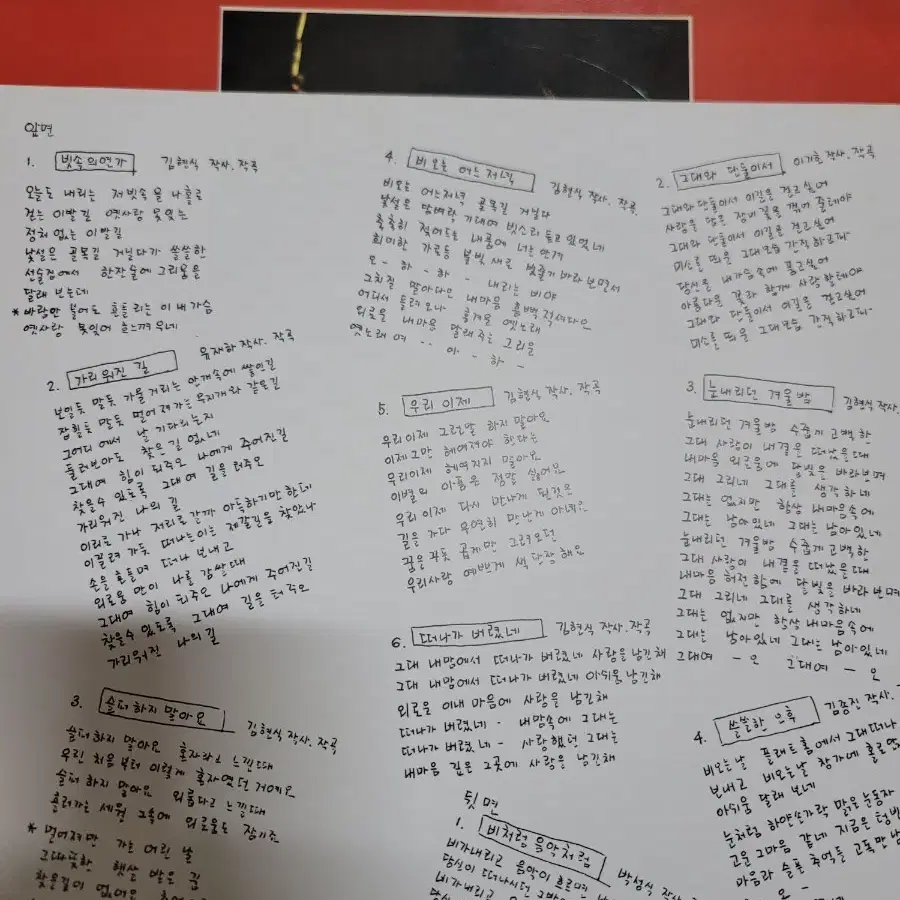 앞면
1. 빗속의 연가 김현식 작사.작곡
오늘도 내리는 저 빗속을 나홀로
걷는 이발길 옛사랑 못잊는
정처없는 이발길
낯설은 골목길 거닐다가 쓸쓸한
선술집에서 한잔술에 그리움을
달래 보는데
* 바람만 불어도 흔들리는 이내가슴
옛사랑 못잊어 흐느껴우네
2. 가리워진 길 유재하 작사.작곡
보일듯 말듯 가물거리는 안개속에 쌓인길
잡힐듯 말듯 멀어져가는 무지개와 같은길
그어디에서 날 기다리는지
둘러보아도 찾을길 없네
그대여 힘이 되주오 나에게 주어진길
찾을수 있도록 그대여 길을 터주오
가리워진 나의 길
이리로 가나 저리로 갈까 아득하기만 한데
이끌려 가듯 떠나는이는 제갈길을 찾았나
손을 흔들며 떠나 보내고
외로움 만이 나를 감쌀때
그대여 힘이 되주오 나에게 주어진길
찾을수 있도록 그대여 길을 터 주오
가리워진 나의 길
3. 슬퍼하지 말아요 김현식 작사.작곡
슬퍼하지 말아요 혼자라고 느낀때
우린 처음부터 이렇게 혼자였던 거예요
슬퍼 하지 말아요 외롭다고 느낀때
흘러가는 세월 그속에 외로움도 잠기죠
* 멀어져만 가는 어린 날
그 따뜻한 햇살 받은 꿈
찾을길이 없어요
4. 비오는 어느 저녁 김현식 작사.작곡
비오는 어느저녁 골목길 거닐다
낯설은 담벼락 기대여 빗소리 듣고 있었네
촉촉히 젖어드는 내품에 너는 안겨
희미한 가로등 불빛 새로 빗줄기 바라보면서
오 - 하 - 하 - 내리는 비야
그치질 말아다오 내마음 흠뻑 적셔다오
어디서 들려오나 흥겨운 옛노래
외로운 내마음 달래주는 그리운
옛노래여 - - 아 - 하 -
5. 우리 이제 김현식 작사.작곡
우리이제 그런말 하지 말아요
이제그만 헤여져야 한다는
우리이제 헤여지지 말아요
이별의 아픔은 정말 싫어요
우리 이제 다시 만나게 된것은
길을 가다 우연히 만난게 아니예요
꿈은 꾸듯 곱게만 그려오던
우리사랑 예쁘게 색단장해요
6. 떠나가 버렸네 김현식 작사.작곡
그대 내맘에서 떠나가 버렸네 사랑을 남긴채
그대 내맘에서 떠나가 버렸네 아쉬움 남긴채
외로운 이내 마음에 사랑을 남긴채
떠나가 버렸네 - 내맘속에 그대는
떠나가 버렸네 - 사랑했던 그대는
내마음 깊은 그곳에 사랑을 남긴채
뒷면
1. 비처럼 음악처럼 박성식 작사
비가내리고 음악이 흐르면
당신이 떠나시던
비가내리고
2. 그대와 단둘이서 이기호 작사.작곡
그대와 단둘이서 이길을 걷고싶어
사랑을 담은 장미꽃을 꺾어 줄테야
그대와 단둘이서 이길을 걷고싶어
미소를 띄운 그대모습 간직하고파-
당신을 내가슴속에 품고싶어
아름다운 꽃과 함께 사랑할테야
그대와 단둘이서 이길을 걷고싶어
미소를 띄운 그대모습 간직하고파-
3. 눈내리던 겨울밤 김현식 작사.
눈내리던 겨울밤 수줍게 고백한
그대 사랑이 내곁을 떠났을때
내마음 외로움에 달빛을 바라보며
그대 그리네 그대를 생각하네
그대는 없지만 항상 내마음속에
그대는 남아있네 그대는 남아있네
눈내리던 겨울밤 수줍게 고백한
그대 사랑이 내곁을 떠났을때
내마음 허전함에 달빛을 바라보며
그대 그리네 그대를 생각하네
그대는 없지만 항상 내마음속에
그대는 남아있네 그대는 남아있네
그대여 - 오 그대여 - 오
4. 쓸쓸한 오후 김종진 작사.
비오는날 플래트홈에서 그대떠나
보내고 비오는날 창가에 홀로
아쉬움 달래 보네
눈처럼 하얀손가락 맑은 눈동자
고운 그마음 같네 지금은
마음과 슬픈 추억들 고독만
오 -